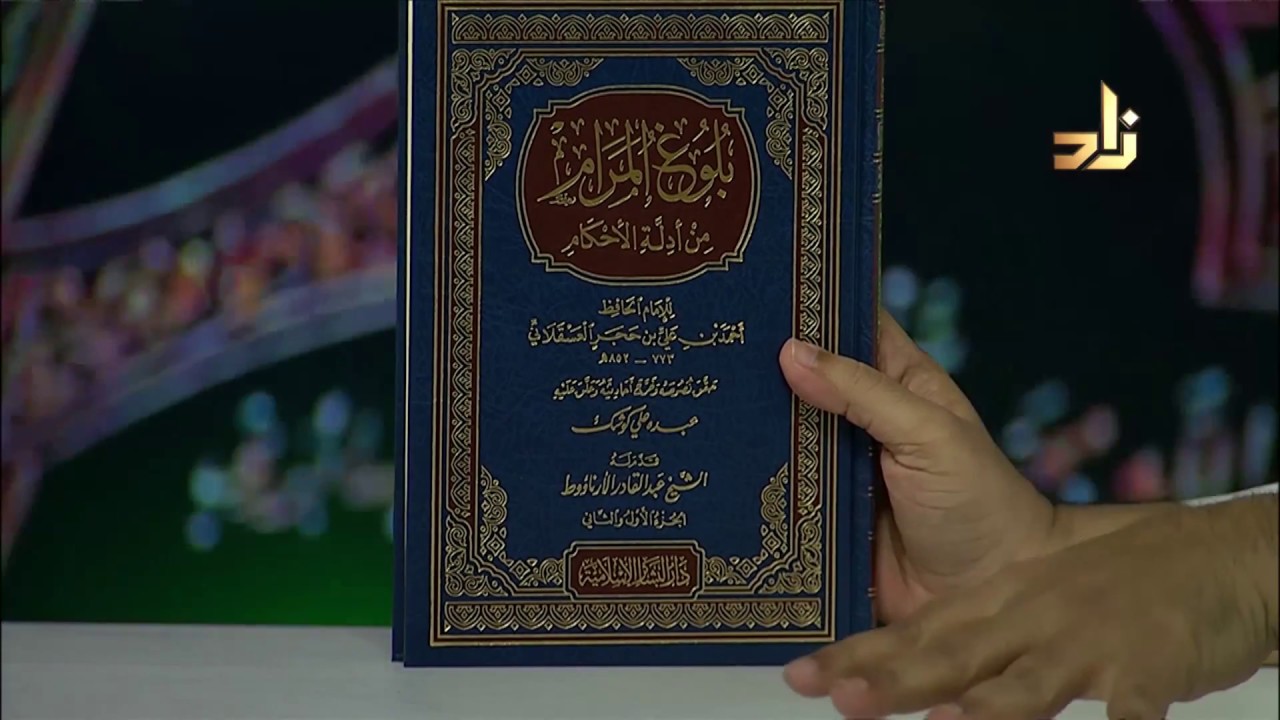 زاد
بُلُوغُ المَرَامِ
مِنْ أَدِلَّةِ الأَحْكَامِ
لِلإِمَامِ الحَافِظ
أَحْمَدَ بْنِ عَلِيِّ بْنِ حَجَرٍ العَسْقَلَانِيِّ
٧٧٣ - ٨٥٢ هـ
حقق نصوصه وخرج أحاديثه وعلق عليه
عبده علي كوشك
قَدَّمَ لَهُ
الشيخ عبد القادر الأرناؤوط
الجزء الأول والثاني
دَارُ البَشَائِرِ الإِسْلَامِيَّة